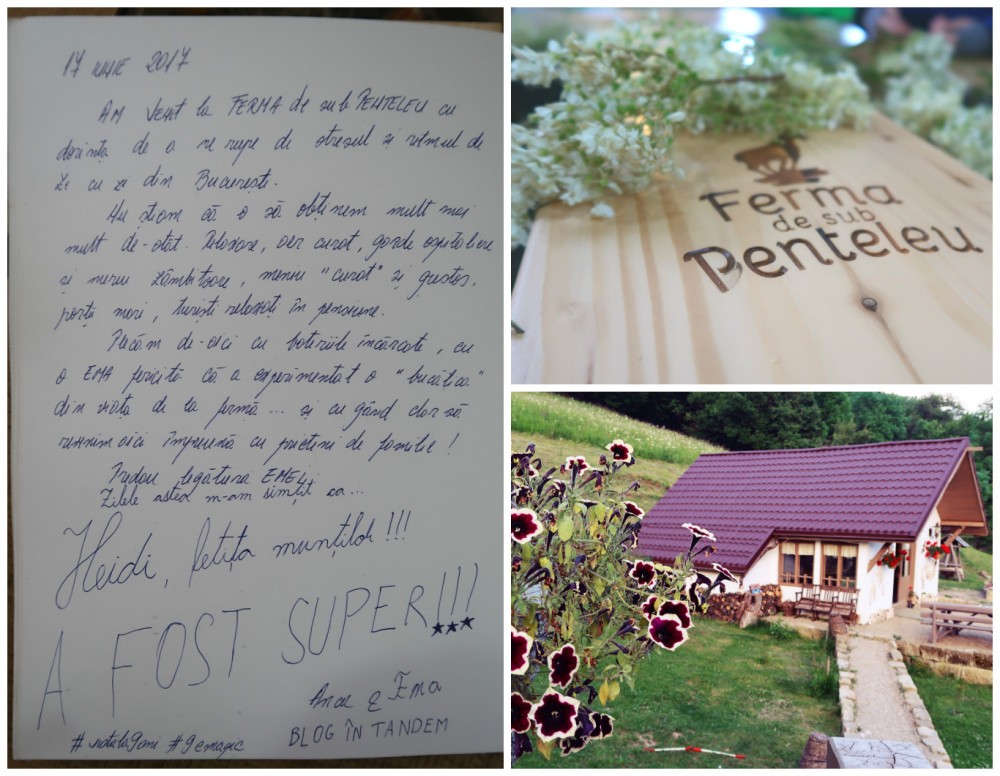 17 IUNIE 2017
AM venit la FERMA de sub PENTELEU cu
dorința de a ne rupe de stresul și ritmul de
zi cu zi din București.
Nu știam că o să obținem mult mai
mult de-atât. Relaxare, aer curat, gazde ospitaliere
și mereu zâmbitoare, meniu "curat" și gustos,
porții mari, turiști relaxați în pensiune.
Plecăm de-aici cu bateriile încărcate, cu
o EMA fericită că a experimentat o "bucățica"
din viața de la fermă... și cu gând clar să
revenim aici împreună cu prieteni de familie!
Predau legătura EMEI.
Zilele astea m-am simțit ca...
Heidi, fetița munților!!!
A FOST SUPER!!!
★★★
Anca & Ema
BLOG ÎN TANDEM
#viatala9ani #9emagic
Ferma
de sub
Penteleu